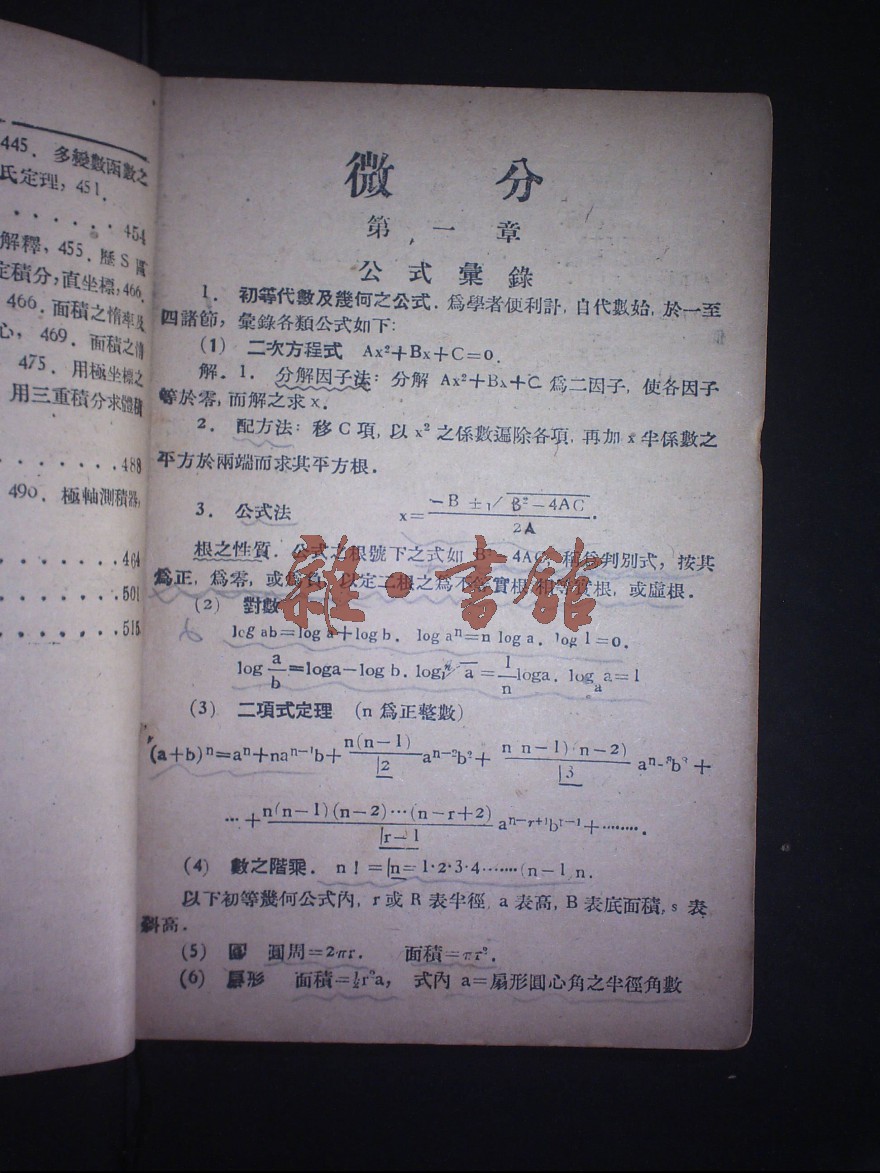 445. 多變數函數之
氏定理, 451.
. . . . . . 454
解釋, 455. 歷 S
定積分, 直坐標, 466.
466. 面積之惰率及
心, 469. 面積之惰
475. 用極坐標之
用三重積分求體積
. . . . . . . 488
490. 極軸測積器,
. . . . . . . 464
. . . . . . . 501
. . . . . . . 515
微 分
第 一 章
公 式 彙 錄
1. 初等代數及幾何之公式. 爲學者便利計, 自代數始, 於一至
四諸節, 彙錄各類公式如下:
(1) 二次方程式 Ax²+Bx+C=0.
解. 1. 分解因子法: 分解 Ax²+Bx+C 爲二因子, 使各因子
等於零, 而解之求 x.
2. 配方法: 移 C 項, 以 x² 之係數遍除各項, 再加 x 半係數之
平方於兩端而求其平方根.
3. 公式法 x = (−B ±√(B²−4AC))/2A.
根之性質. 公式之根號下之式如 B²−4AC, 稱爲判別式, 按其
爲正, 爲零, 或爲負, 以定二根之爲不等實根, 相等實根, 或虛根.
雜·書館
(2) 對數
log ab=log a+log b. log aⁿ=n log a. log 1=0.
log a/b=loga−log b. log ⁿ√a=1/n loga. logₐ a=1
(3) 二項式定理 (n 爲正整數)
(a+b)ⁿ=aⁿ+naⁿ⁻¹b+ n(n−1)/|2 aⁿ⁻²b²+ n(n−1)(n−2)/|3 aⁿ⁻³b³+
…+ n(n−1)(n−2)…(n−r+2)/|r−1 aⁿ⁻ʳ⁺¹bʳ⁻¹+…….
(4) 數之階乘. n!=|n=1·2·3·4……(n−1)n.
以下初等幾何公式內, r 或 R 表半徑, a 表高, B 表底面積, s 表
斜高.
(5) 圓 圓周=2πr. 面積=πr².
(6) 面積=½r²a, 式內 a=扇形圓心角之半徑角數